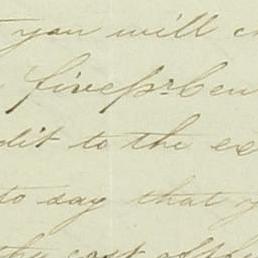 you will
five pr Cen
dit to the ex
to say that
the cost of